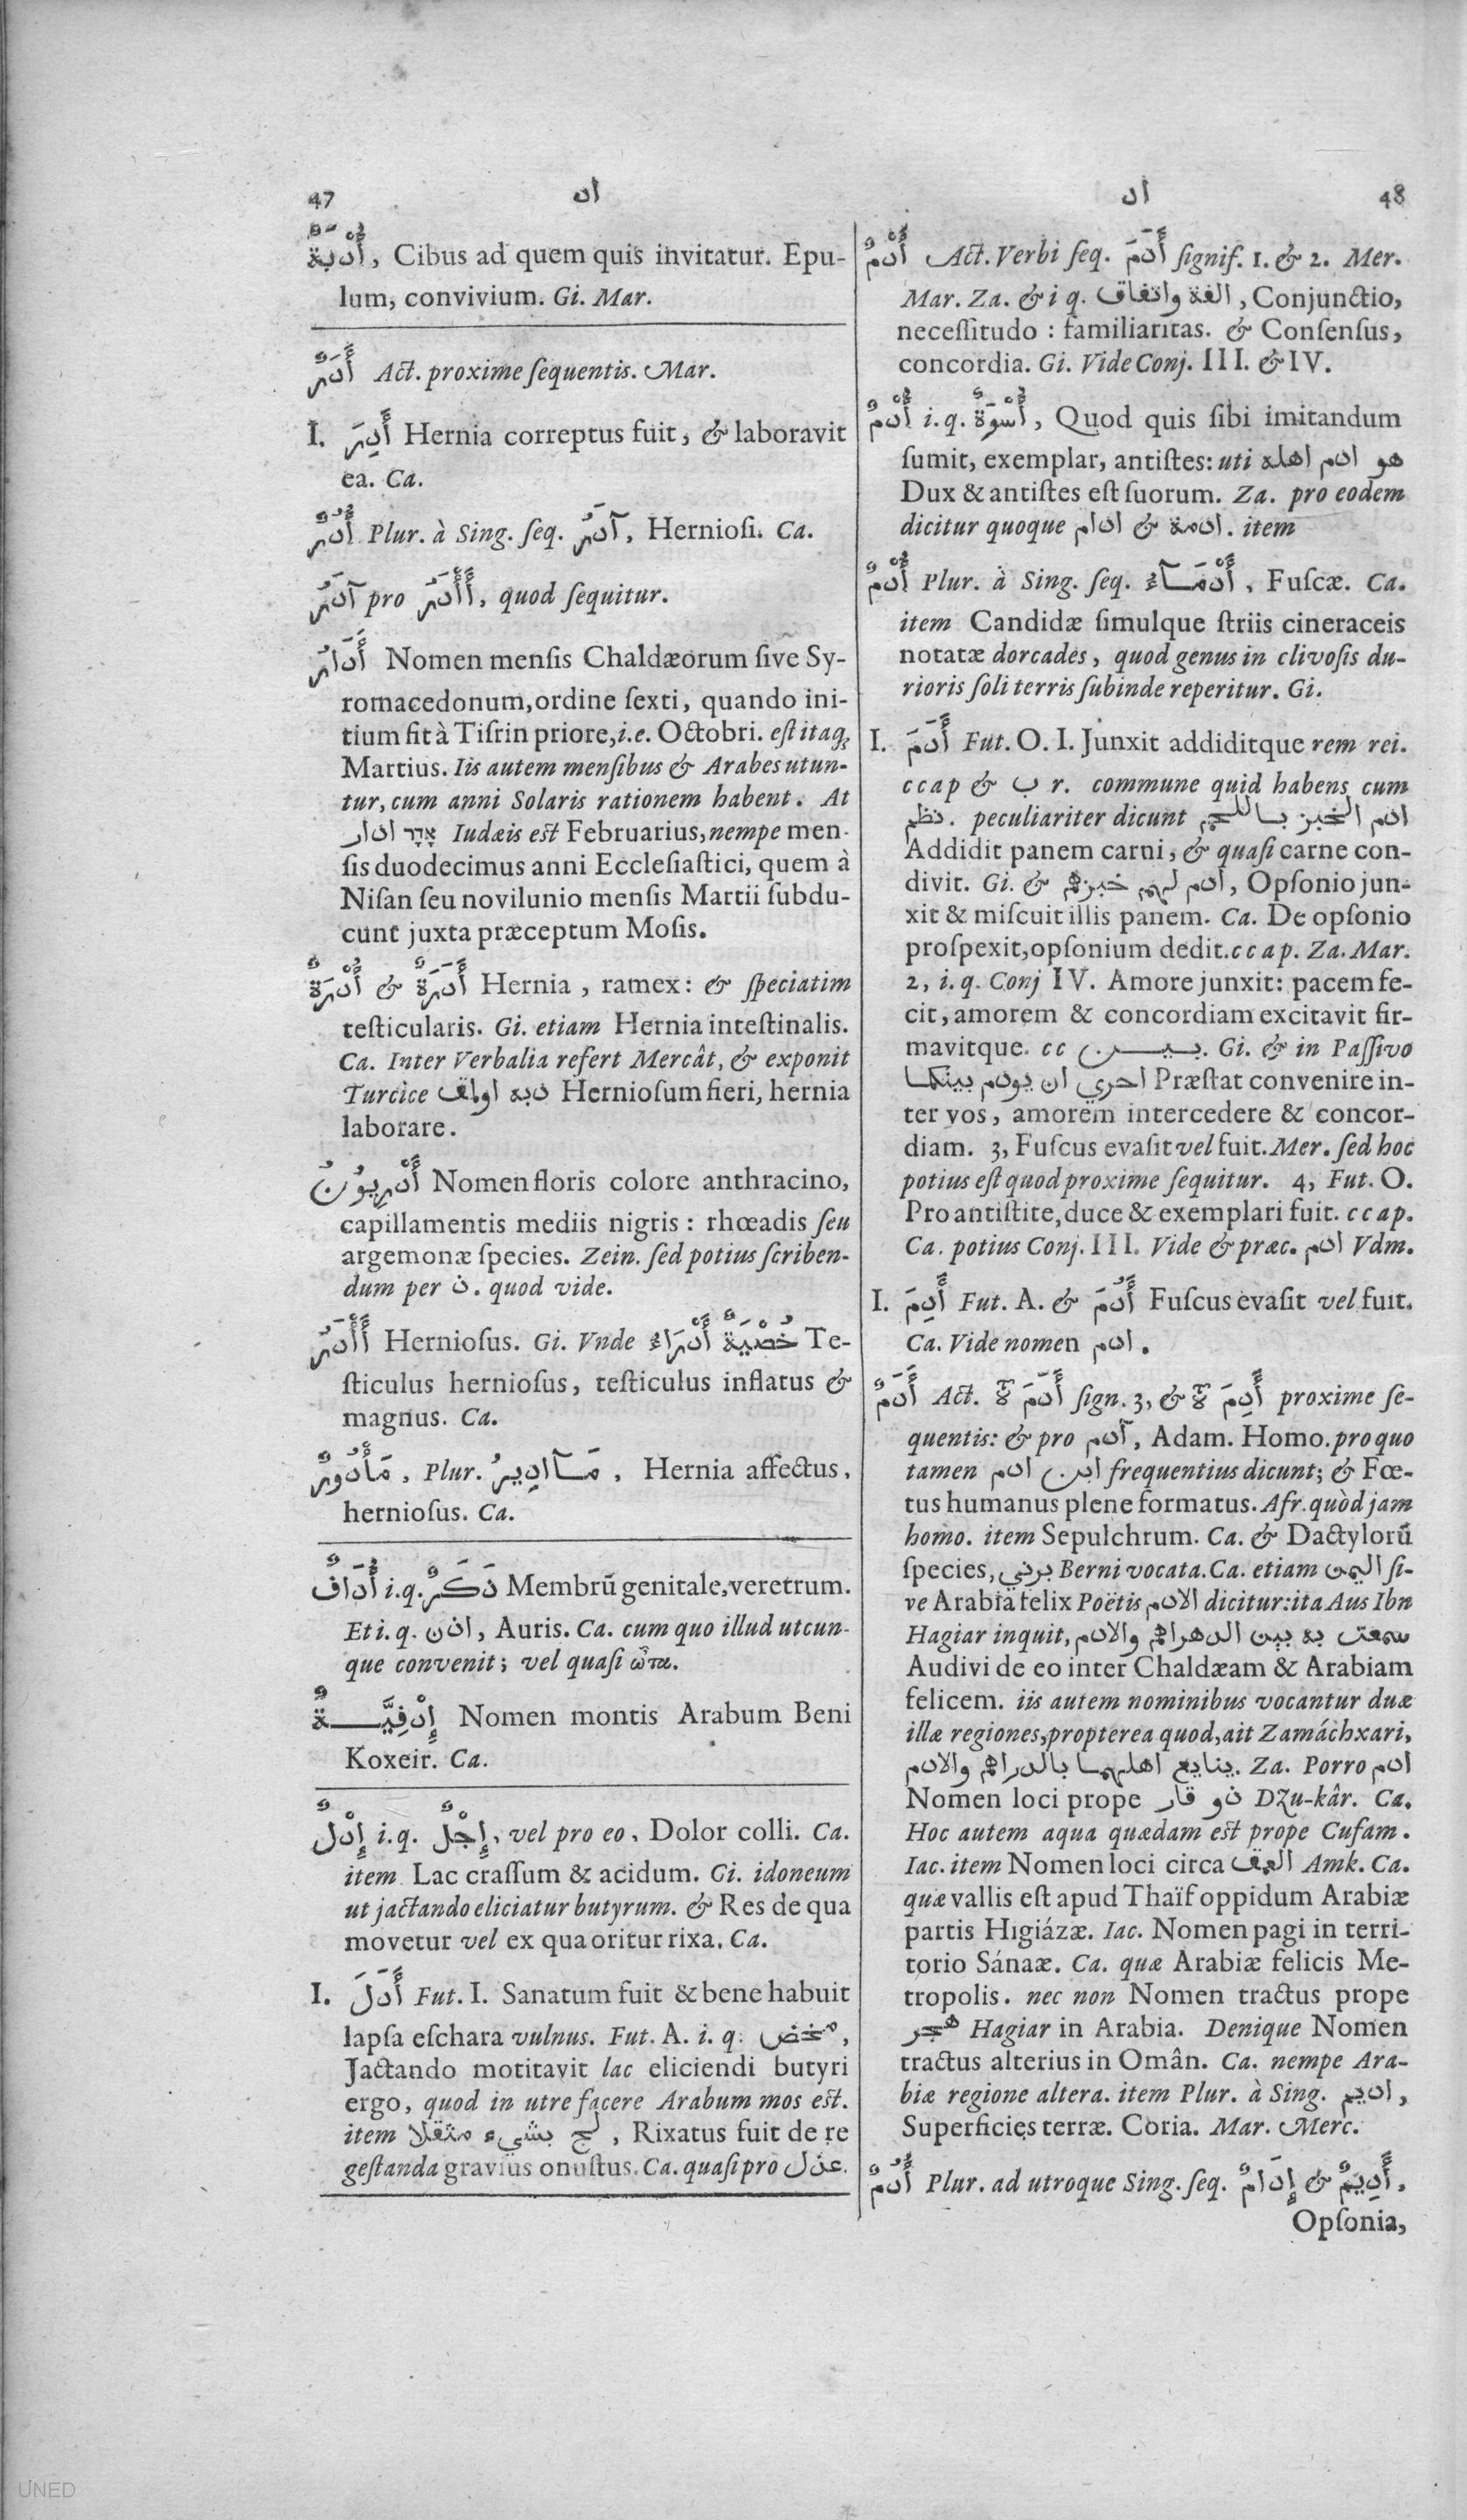 47 اد
أُدْبَةٌ, Cibus ad quem quis invitatur. Epu-
lum, convivium. Gi. Mar.
أَدَرٌ Act. proxime ſequentis. Mar.
I. أَدِرَ Hernia correptus fuit, & laboravit
ea. Ca.
أُدُرٌ Plur. à Sing. ſeq. آدَرُ, Hernioſi. Ca.
آدَرُ pro أَأْدَرُ, quod ſequitur.
أَدَارُ Nomen menſis Chaldæorum ſive Sy-
romacedonum, ordine ſexti, quando ini-
tium fit à Tiſrin priore, i.e. Octobri. eſt itaq;
Martius. Iis autem menſibus & Arabes utun-
tur, cum anni Solaris rationem habent. At
אֲדָר ادار Iudæis eſt Februarius, nempe men-
ſis duodecimus anni Eccleſiaſtici, quem à
Niſan ſeu novilunio menſis Martii ſubdu-
cunt juxta præceptum Moſis.
أُدْرَةٌ & أَدَرَةٌ Hernia, ramex: & ſpeciatim
teſticularis. Gi. etiam Hernia inteſtinalis.
Ca. Inter Verbalia refert Mercât, & exponit
Turcice دبه اولمق Hernioſum fieri, hernia
laborare.
أَدْرِيُونُ Nomen floris colore anthracino,
capillamentis mediis nigris: rhœadis ſeu
argemonæ ſpecies. Zein. ſed potius ſcriben-
dum per ذ. quod vide.
أَأْدَرُ Hernioſus. Gi. Vnde خُصْيَةٌ أَدْرَاءُ Te-
ſticulus hernioſus, teſticulus inflatus &
magnus. Ca.
مَأْدُورٌ, Plur. مَآادِيرُ, Hernia affectus,
hernioſus. Ca.
أُدَافٌ i.q. ذَكَرٌ Membrū genitale, veretrum.
Et i.q. اذن, Auris. Ca. cum quo illud utcun-
que convenit; vel quaſi ὦτα.
إِدْفِيَّةٌ Nomen montis Arabum Beni
Koxeir. Ca.
إِدْلٌ i.q. إِجْلٌ, vel pro eo, Dolor colli. Ca.
item Lac craſſum & acidum. Gi. idoneum
ut jactando eliciatur butyrum. & Res de qua
movetur vel ex qua oritur rixa. Ca.
I. أَدَلَ Fut. I. Sanatum fuit & bene habuit
lapſa eſchara vulnus. Fut. A. i. q. مخض,
Jactando motitavit lac eliciendi butyri
ergo, quod in utre facere Arabum mos eſt.
item لج بشيء مثقلا, Rixatus fuit de re
geſtanda gravius onuſtus. Ca. quaſi pro عدل.
اد 48
أُدْمٌ Act. Verbi ſeq. أَدَمَ ſignif. 1. & 2. Mer.
Mar. Za. & i q. الفة واتفاق, Conjunctio,
neceſſitudo: familiaritas. & Conſenſus,
concordia. Gi. Vide Conj. III. & IV.
أُدْمٌ i.q. أُسْوَةٌ, Quod quis ſibi imitandum
ſumit, exemplar, antiſtes: uti هو ادم اهله
Dux & antiſtes eſt ſuorum. Za. pro eodem
dicitur quoque ادام & ادمة. item
أُدْمٌ Plur. à Sing. ſeq. أَدْمَآءُ, Fuſcæ. Ca.
item Candidæ ſimulque ſtriis cineraceis
notatæ dorcades, quod genus in clivoſis du-
rioris ſoli terris ſubinde reperitur. Gi.
I. أَدَمَ Fut. O. I. Junxit addiditque rem rei.
ccap & ب r. commune quid habens cum
نظم. peculiariter dicunt ادم الخبز باللحم
Addidit panem carni, & quaſi carne con-
divit. Gi. & ادم لهم خبزهم, Opſonio jun-
xit & miſcuit illis panem. Ca. De opſonio
proſpexit, opſonium dedit. ccap. Za. Mar.
2, i.q. Conj IV. Amore junxit: pacem fe-
cit, amorem & concordiam excitavit fir-
mavitque. cc بين. Gi. & in Paſſivo
احري ان يودم بينكما Præſtat convenire in-
ter vos, amorem intercedere & concor-
diam. 3, Fuſcus evaſit vel fuit. Mer. ſed hoc
potius eſt quod proxime ſequitur. 4, Fut. O.
Pro antiſtite, duce & exemplari fuit. ccap.
Ca. potius Conj. III. Vide & præc. ادم Vdm.
I. أَدِمَ Fut. A. & أَدُمَ Fuſcus evaſit vel fuit.
Ca. Vide nomen ادم.
أَدَمٌ Act. أَدَمَ ſign. 3, & أَدِمَ proxime ſe-
quentis: & pro آدم, Adam. Homo. pro quo
tamen ابن ادم frequentius dicunt; & Fœ-
tus humanus plene formatus. Afr. quòd jam
homo. item Sepulchrum. Ca. & Dactylorū
ſpecies, برني Berni vocata. Ca. etiam اليمن ſi-
ve Arabia felix Poëtis الادم dicitur: ita Aus Ibn
Hagiar inquit, سمعت به بين الدهراهم والادم
Audivi de eo inter Chaldæam & Arabiam
felicem. iis autem nominibus vocantur duæ
illæ regiones, propterea quod, ait Zamáchxari,
يتبايع اهلهما بالدراهم والادم. Za. Porro ادم
Nomen loci prope ذو قار DZu-kâr. Ca.
Hoc autem aqua quædam eſt prope Cufam.
Iac. item Nomen loci circa العمق Amk. Ca.
quæ vallis eſt apud Thaïf oppidum Arabiæ
partis Higiázæ. Iac. Nomen pagi in terri-
torio Sánaæ. Ca. quæ Arabiæ felicis Me-
tropolis. nec non Nomen tractus prope
هجر Hagiar in Arabia. Denique Nomen
tractus alterius in Omân. Ca. nempe Ara-
biæ regione altera. item Plur. à Sing. اديم,
Superficies terræ. Coria. Mar. Merc.
أُدُمٌ Plur. ad utroque Sing. ſeq. إِدَامٌ & أَدِيمٌ,
Opſonia,
UNED